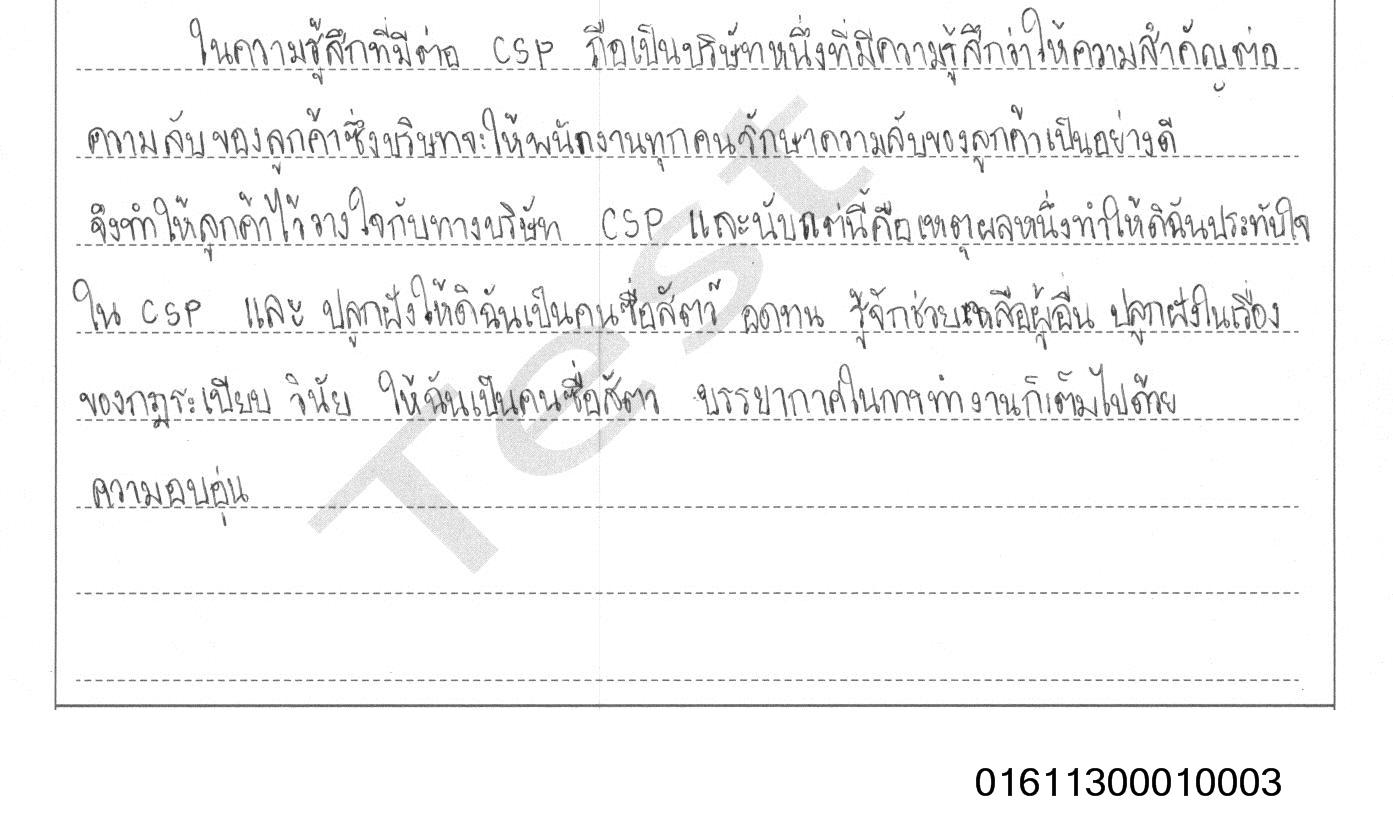 ในความรู้สึกที่มีต่อ CSP ถือเป็นบริษัทหนึ่งที่มีความรู้สึกว่าให้ความสำคัญต่อ
ความลับของลูกค้าซึ่งบริษทจะให้พนักงานทุกคนรักษาความลับของลูกค้าเป็นอย่างดี
จึงทำให้ลูกค้าไว้วางใจกับทางบริษัท CSP และนับแต่นี้คือเหตุผลหนึ่งทำให้ดิฉันประทับใจ
ใน CSP และ ปลูกฝังให้ดิฉันเป็นคนซื่อสัตว์ อดทน รู้จักช่วยเหลือผู้อื่น ปลูกฝังในเรื่อง
ของกฎระเบียบ วินัย ให้ฉันเป็นคนซื่อสัตว บรรยากาศในการทำงานก็เต็มไปด้วย
ความอบอุ่น
Test
01611300010003